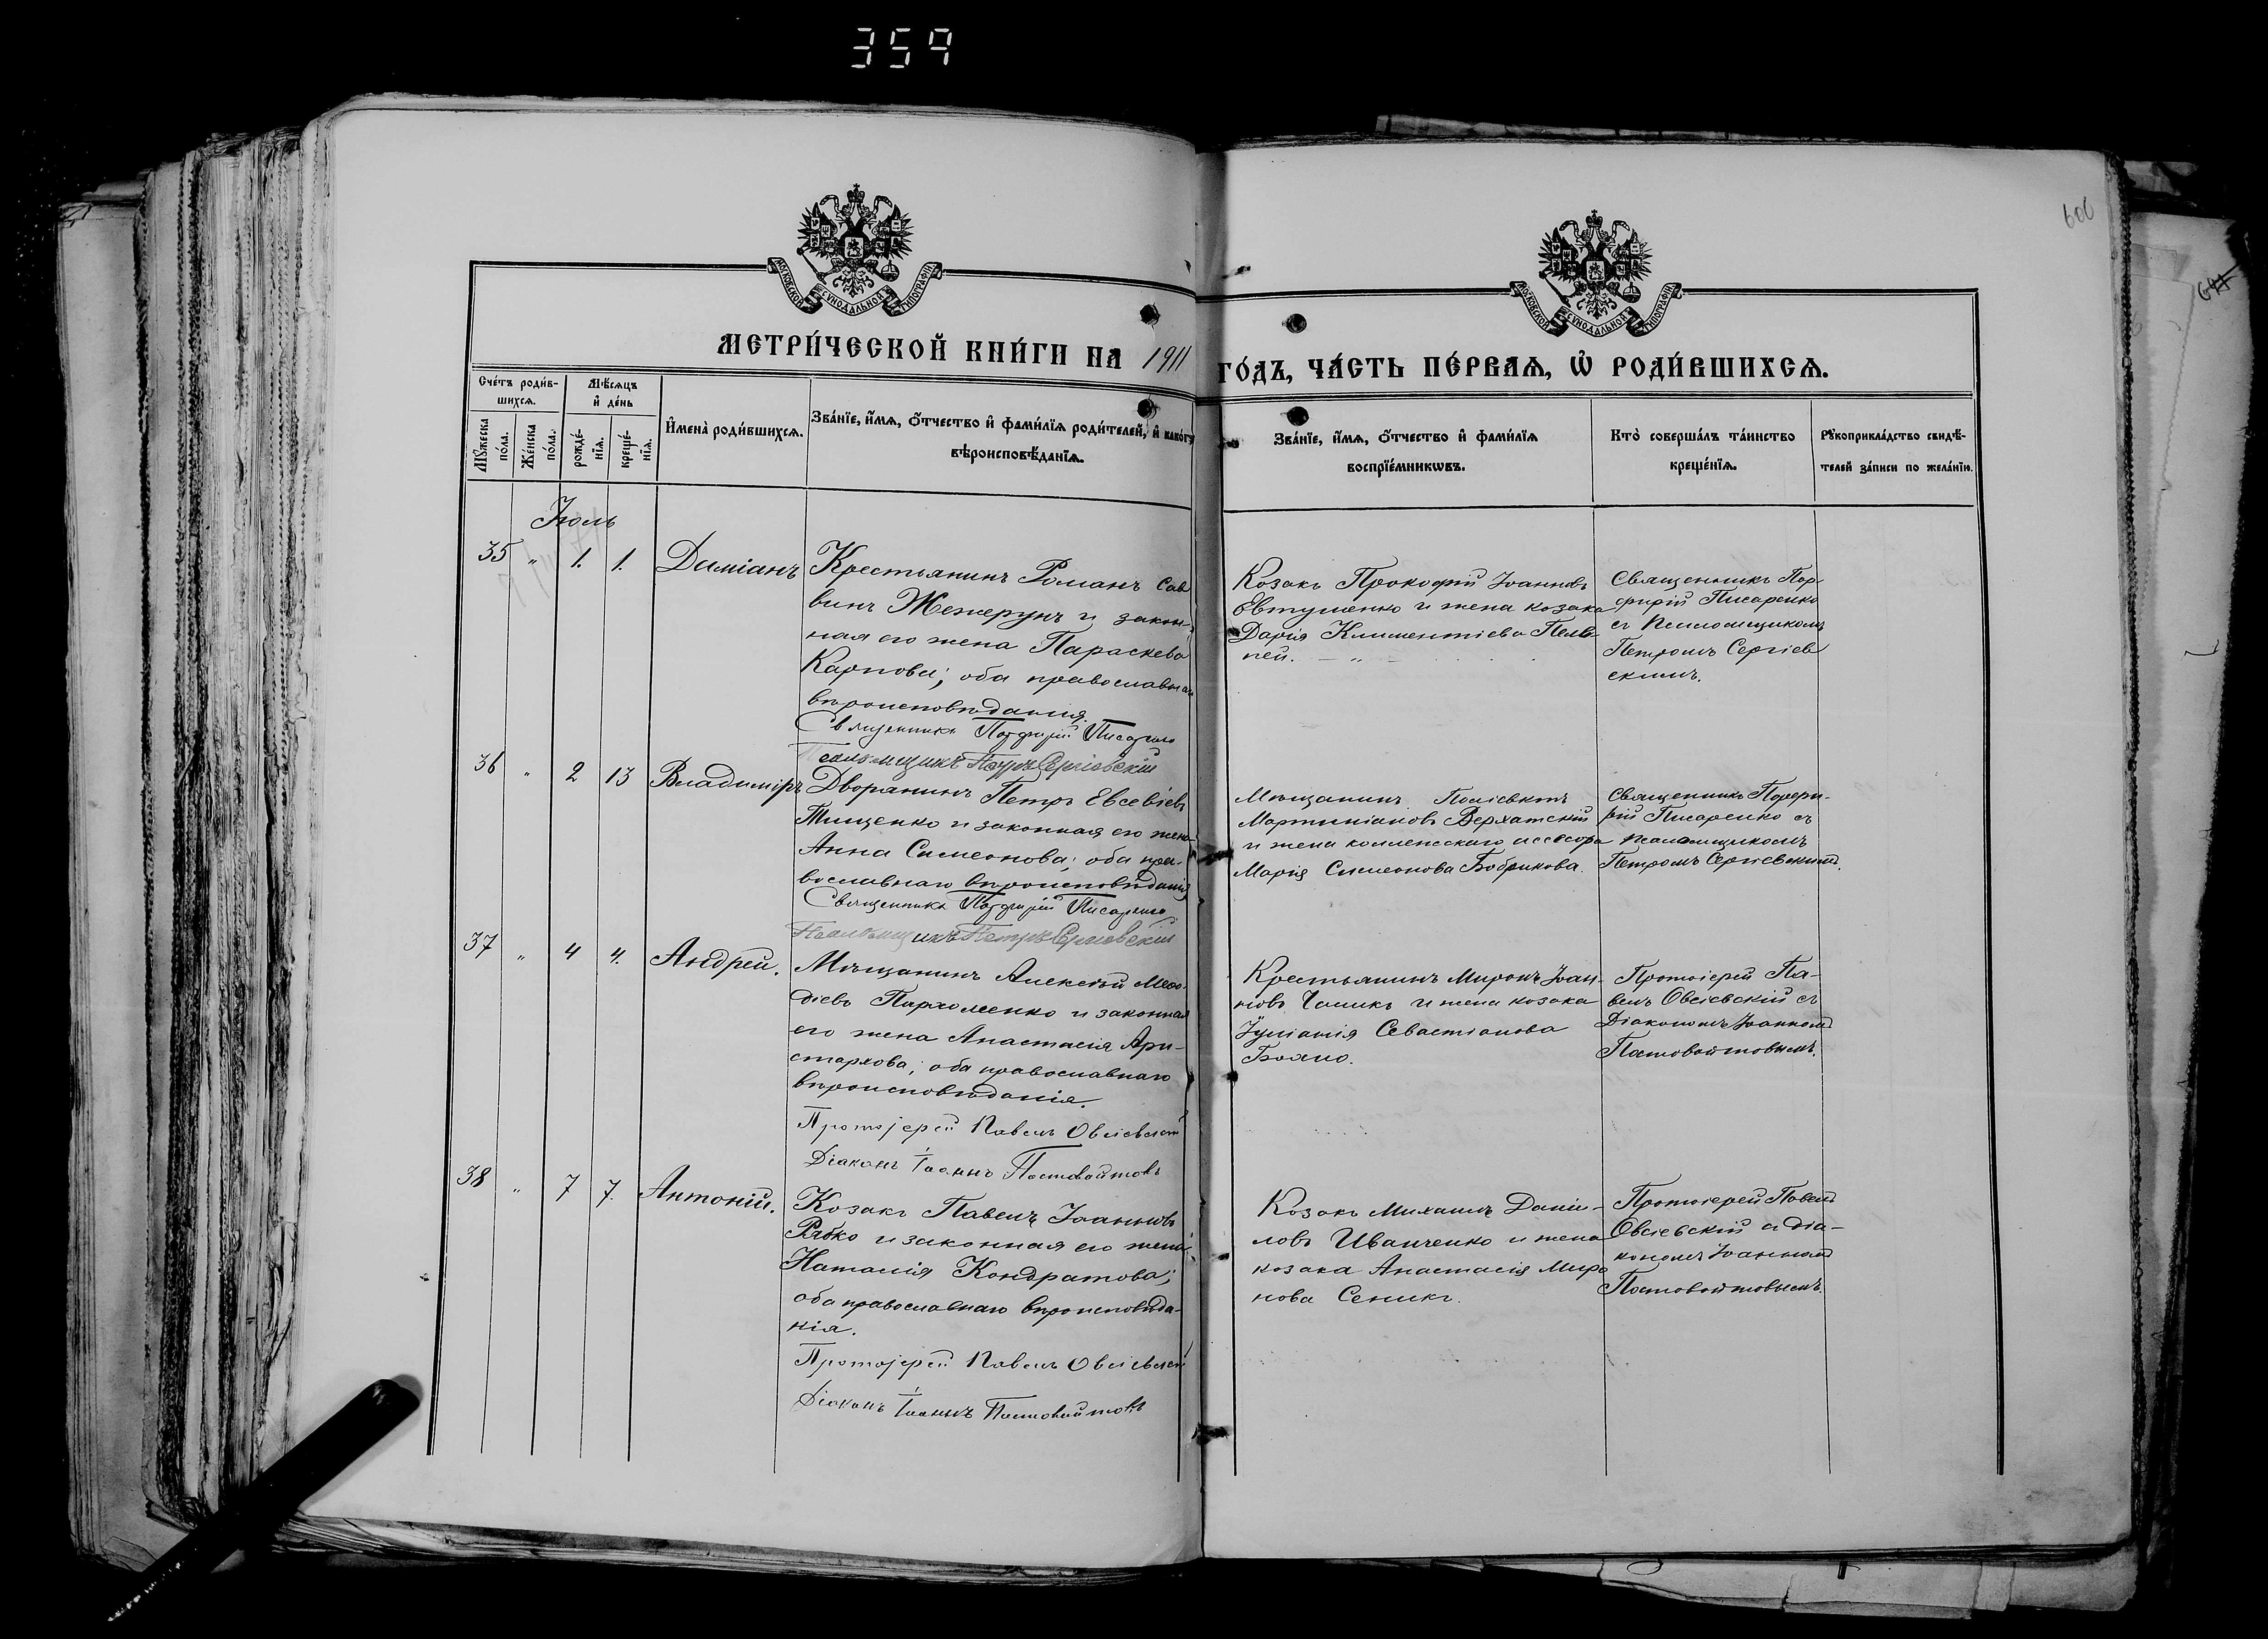 359
606
МОСКОВСКОЙ СѴНОДАЛЬНОЙ ТИПОГРАФІИ
МОСКОВСКОЙ СѴНОДАЛЬНОЙ ТИПОГРАФІИ
МЕТРИ́ЧЕСКОЙ КНИ́ГИ НА 1911
ГО́ДЪ, ЧА́СТЬ ПЕ́РВАЯ, Ѡ РОДИ́ВШИХСЯ.
Сче́тъ роди́в-
шихся.
Мꙋ́жеска
по́ла.
Же́нска
по́ла.
Мѣ́сяцъ
и҆ де́нь
рожде́-
нїя.
креще́-
нїя.
И҆мена̀ роди́вшихся.
Зва́нїе, и҆́мя, ѻ҆́тчество и҆ фами́лїя роди́телей, и҆ како́гѡ
вѣроисповѣ́данїя.
Зва́нїе, и҆́мя, ѻ҆́тчество и҆ фами́лїя
воспрїе́мникѡвъ.
Кто̀ соверша́лъ та́инство
креще́нїя.
Рꙋкоприкла́дство свидѣ́-
телей за́писи по жела́нїю.
Іюль
35 " 1. 1. Даміанъ
Крестьянинъ Романъ Сав
винъ Жежерунъ и закон-
ная его жена Параскева
Карпова; оба православнаго
вѣроисповѣданія.
Священникъ Порфирій Писаренко
Псаломщикъ Петръ Сергіевскій
Козакъ Прокофій Іоанновъ
Евтушенко и жена козака
Дарія Климентіева Пель
пей. — " —
Священникъ Пор-
фирій Писаренко
съ Псаломщикомъ
Петромъ Сергіев
скимъ.
36 " 2 13 Владиміръ
Дворянинъ Петръ Евсевіевъ
Тищенко и законная его жена
Анна Симеонова; оба пра-
вославнаго вѣроисповѣданія
Священникъ Порфирій Писаренко
Псаломщикъ Петръ Сергіевскій
Мѣщанинъ
Мартиніановъ Верхатскій
и жена коллежскаго ассесора
Марія Симеонова Бобрикова.
Священникъ Порфи-
рій Писаренко съ
псаломщикомъ
Петромъ Сергіевскимъ.
37 " 4 4. Андрей.
Мѣщанинъ Алексѣй Меѳо-
діевъ Пархоменко и законная
его жена Анастасія Ари-
стархова; оба православнаго
вѣроисповѣданія.
Протоіерей Павелъ Овсіевскій
Діаконъ Іоаннъ Постовойтовъ
Крестьянинъ Миронъ Іоан-
новъ и жена козака
Іуліанія Севастіанова
Бояно.
Протоіерей Па-
велъ Овсіевскій съ
Діакономъ Іоанномъ
Постовойтовымъ.
38 " 7 7. Антоній.
Козакъ Павелъ Іоанновъ
Рябко и законная его жена
Наталія Кондратова;
оба православнаго вѣроисповѣда-
нія.
Протоіерей Павелъ Овсіевскій
Діаконъ Іоаннъ Постовойтовъ
Козакъ Михаилъ Дани-
ловъ Иванченко и жена
козака Анастасія Миро
нова Сеникъ.
Протоіерей Павелъ
Овсіевскій съ діа-
кономъ Іоанномъ
Постовойтовымъ.